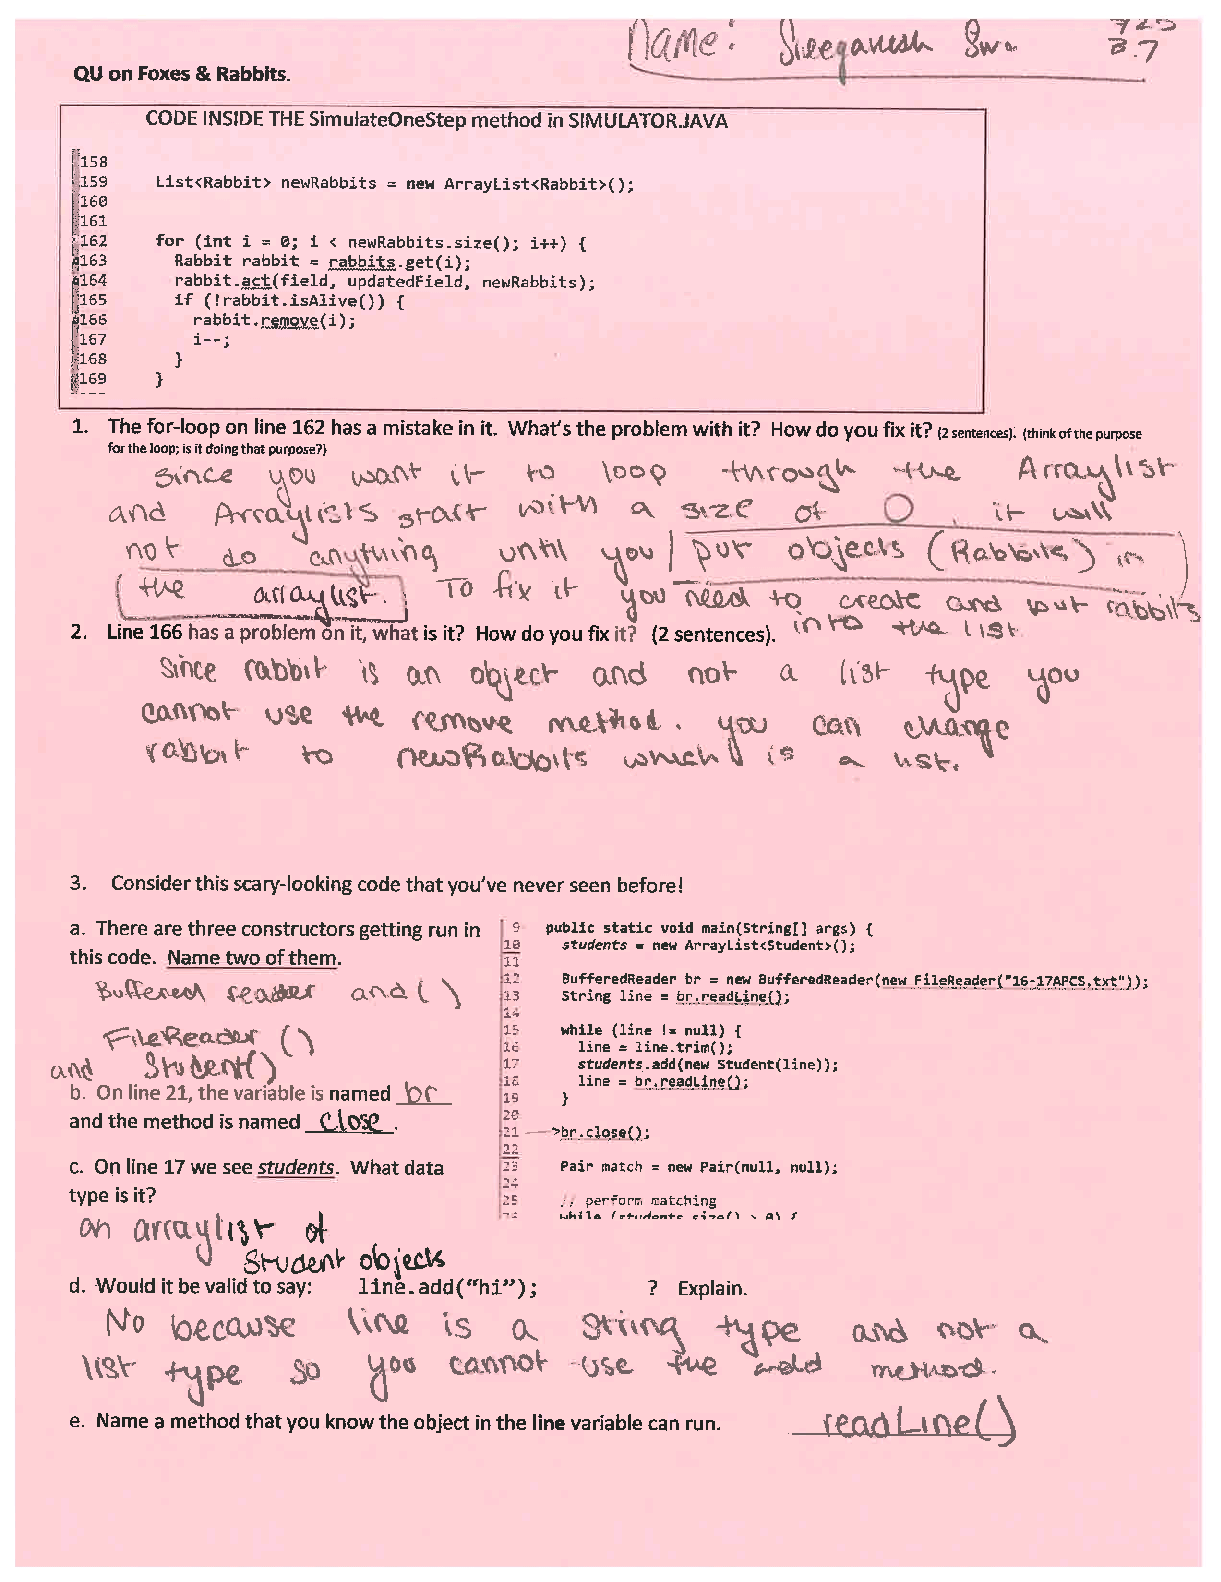 Name: Sreeganesh
QU on Foxes & Rabbits.
CODE INSIDE THE SimulateOneStep method in SIMULATOR.JAVA
158
159 List<Rabbit> newRabbits = new ArrayList<Rabbit>();
160
161
162 for (int i = 0; i < newRabbits.size(); i++) {
163 Rabbit rabbit = rabbits.get(i);
164 rabbit.act(field, updatedField, newRabbits);
165 if (!rabbit.isAlive()) {
166 rabbit.remove(i);
167 i--;
168 }
169 }
1. The for-loop on line 162 has a mistake in it. What's the problem with it? How do you fix it? (2 sentences). (think of the purpose
for the loop; is it doing that purpose?)
Since you want it to loop through the Arraylist
and Arraylists start with a size of 0, it will
not do anything until you put objects (Rabbits) in
the arraylist. To fix it you need to create and put rabbits
into the list
2. Line 166 has a problem on it, what is it? How do you fix it? (2 sentences).
Since rabbit is an object and not a list type you
cannot use the remove method. you can change
rabbit to newRabbits which is a list.
3. Consider this scary-looking code that you've never seen before!
a. There are three constructors getting run in
this code. Name two of them.
Buffered reader and ()
FileReader ()
and Student()
b. On line 21, the variable is named br
and the method is named close.
c. On line 17 we see students. What data
type is it?
an arraylist of
Student objects
9 public static void main(String[] args) {
10 students = new ArrayList<Student>();
11
12 BufferedReader br = new BufferedReader(new FileReader("16-17APCS.txt"));
13 String line = br.readLine();
14
15 while (line != null) {
16 line = line.trim();
17 students.add(new Student(line));
18 line = br.readLine();
19 }
20
21 >br.close();
22
23 Pair match = new Pair(null, null);
24
25 // perform matching
while (students.size() > 0) {
d. Would it be valid to say: line.add("hi"); ? Explain.
No because line is a String type and not a
list type so you cannot use the add method.
e. Name a method that you know the object in the line variable can run. readLine()